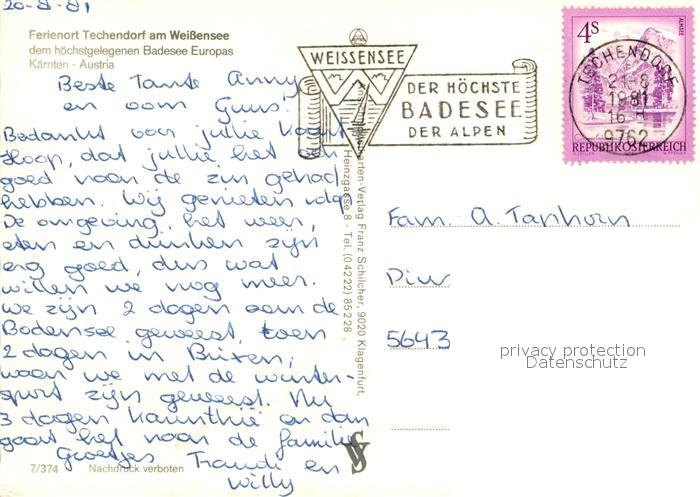 20-8-81
Ferienort Techendorf am Weißensee
dem höchstgelegenen Badesee Europas
Kärnten - Austria
Beste Tante Anny
en oom Guus.
Bedankt voor jullie kaart
Hoop, dat jullie het ook
goed naar de zin gehad
hebben. Wij genieten volop
De omgeving, het weer,
eten en drinken zijn
erg goed, dus wat
willen we nog meer.
We zijn 2 dagen aan de
Bodensee geweest, toen
2 dagen in
waar we met de winter-
sport zijn geweest. Nu
3 dagen Karinthië en dan
gaat het naar de familie
Groetjes Traudi en
Willy
7/374 Nachdruck verboten
Heinzgasse 8 - Tel. (0 42 22) 85 2 28
Verlag Franz Schilcher, 9020 Klagenfurt,
WEISSENSEE
DER HÖCHSTE
BADESEE
DER ALPEN
4S
ALMSEE
TECHENDORF
21-8
1981
16
9762
REPUBLIK ÖSTERREICH
Fam. A. Taphorn
5643
privacy protection
Datenschutz